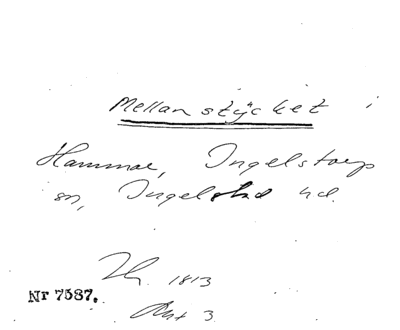 Mellanstycket i
Hammar, Ingelstorp
sn, Ingelstad hd.
1813
Nr 7587.
3